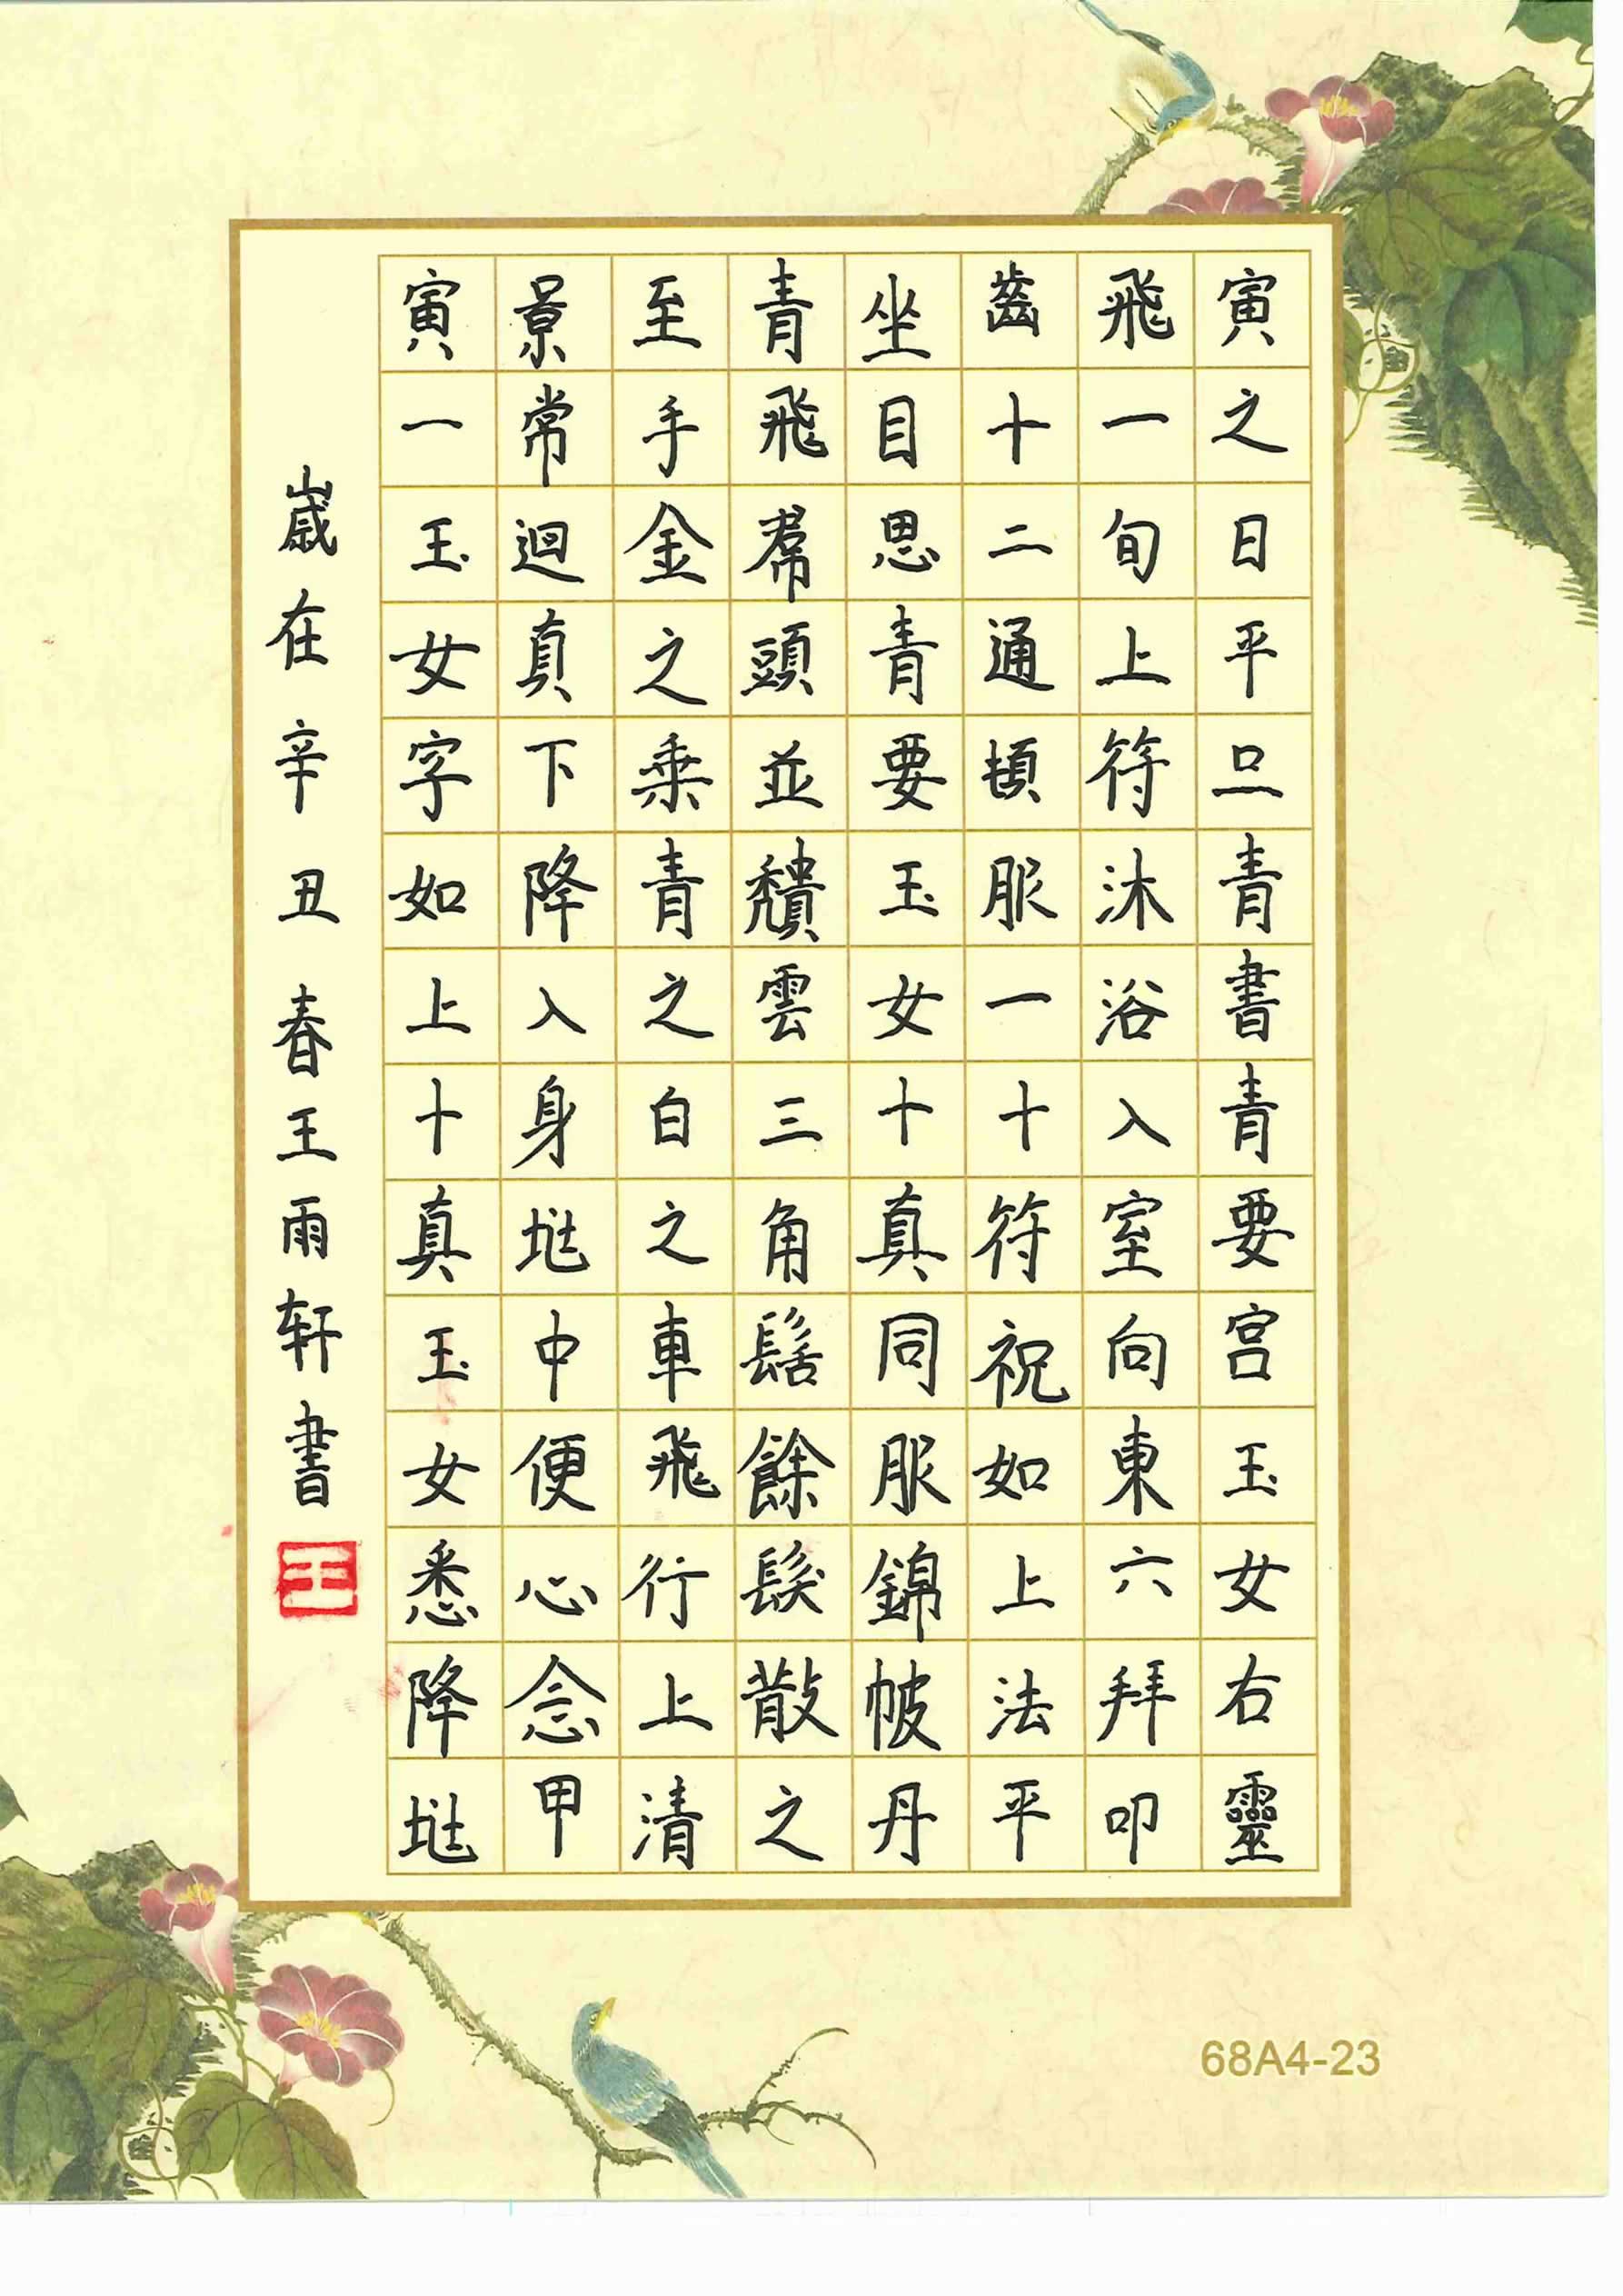 寅之日平旦青書青要宮玉女右靈
飛一旬上符沐浴入室向東六拜叩
齒十二通頓服一十符祝如上法平
坐目思青要玉女十真同服錦帔丹
青飛帬頭並穨雲三角髻餘髮散之
至手金之乗青之白之車飛行上清
景常迴真下降入身中便心念甲
寅一玉女字如上十真玉女悉降
歲在辛丑春王雨轩書
王
68A4-23